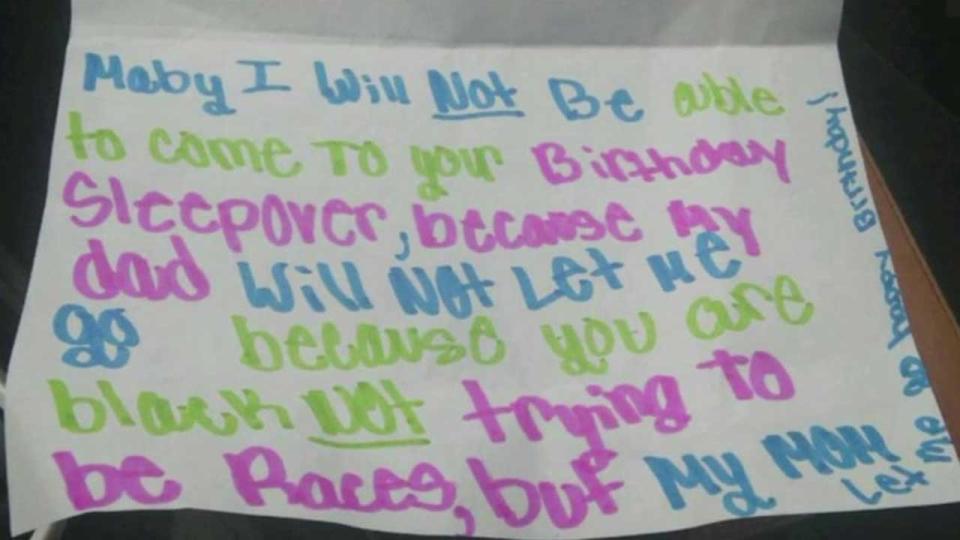 Maby I Will Not Be able
to come To your Birthday
Sleepover, because my
dad Will Not Let me
go because you are
black Not trying to
be Races, but My MOM
Let me go Happy Birthday!